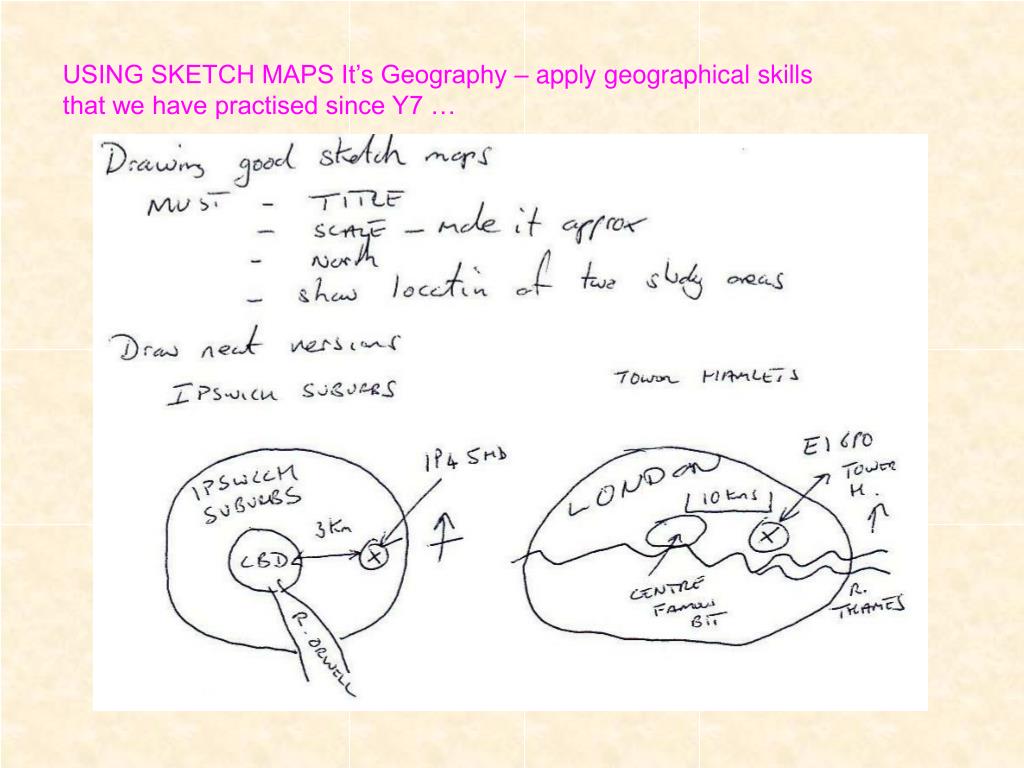 USING SKETCH MAPS It’s Geography – apply geographical skills
that we have practised since Y7 …
Drawing good sketch maps
MUST - TITLE
- SCALE - make it approx
- North
- show location of two study areas
Draw neat versions
IPSWICH SUBURBS
TOWER HAMLETS
IPSWICH
SUBURBS
IP4 5HD
3 Km
CBD
R. ORWELL
LONDON
10 kms
E1 6PO
TOWER
H.
CENTRE
FAMOUS
BIT
R.
THAMES